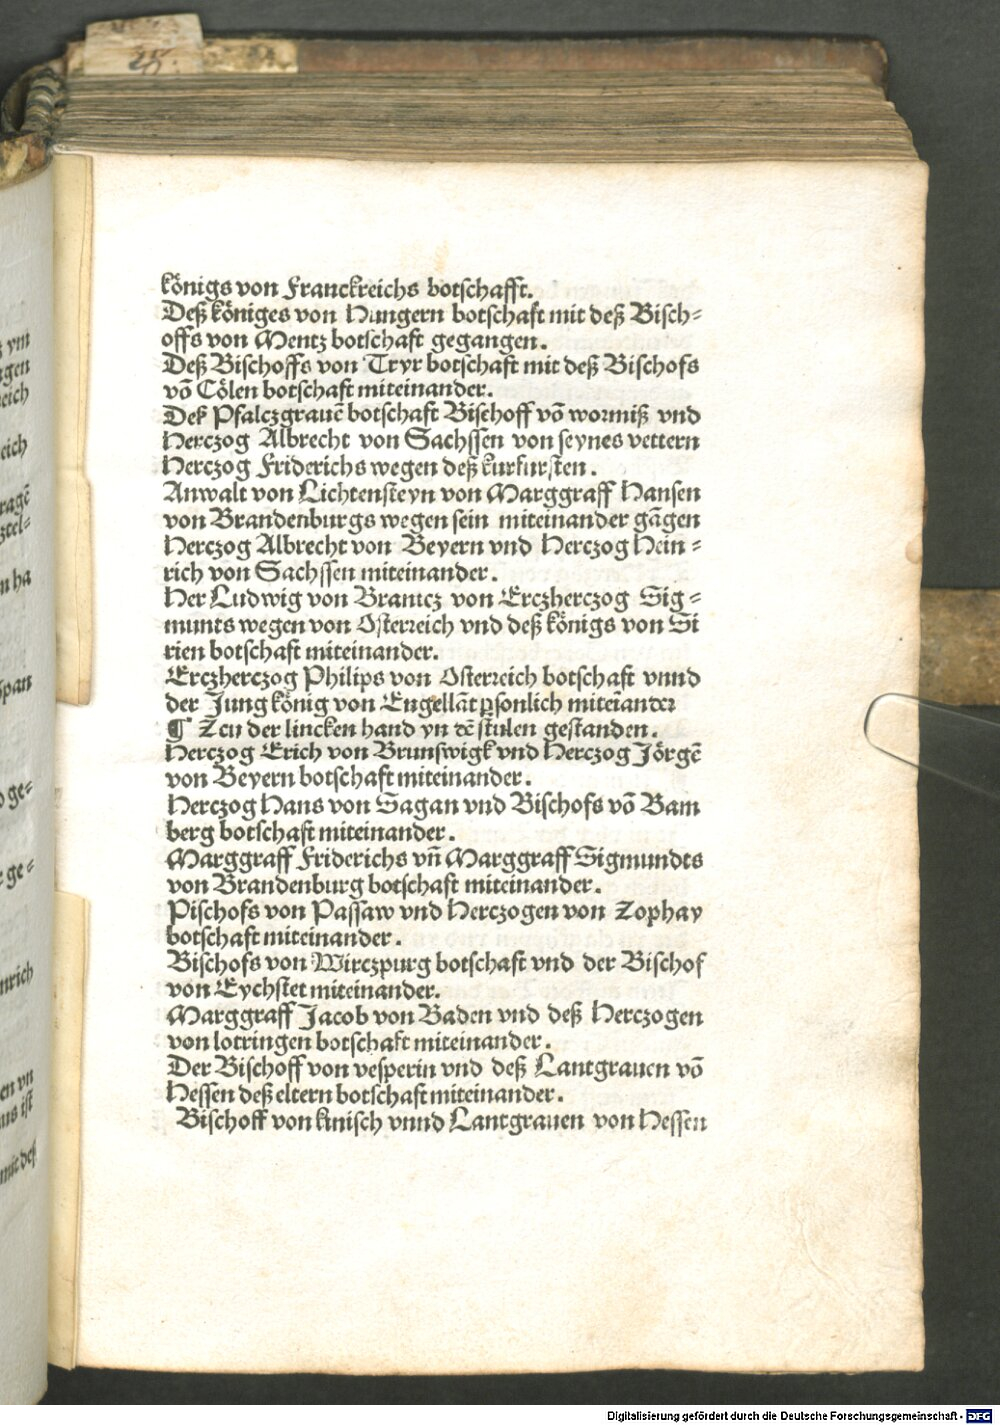 königs von Franckreichs botschafft.
Deß königes von Hungern botschaft mit deß Bisch⸗
offs von Mentz botschaft gegangen.
Deß Bischoffs von Tryr botschaft mit deß Bischofs
võ Cölen botschaft miteinander.
Deß Pfalczgrauẽ botschaft Bischoff võ wormiß vnd
Herczog Albrecht von Sachssen von seynes vettern
Herczog Friderichs wegen deß kurfursten.
Anwalt von Lichtensteyn von Marggraff Hansen
von Brandenburgs wegen sein miteinander gãgen
Herczog Albrecht von Beyern vnd Herczog Hein⸗
rich von Sachssen miteinander.
Her Ludwig von Brantcz von Erczherczog Sig⸗
munts wegen von Osterreich vnd deß königs von Si
rien botschaft miteinander.
Erczherczog Philips von Osterreich botschaft vnnd
der Jung könig von Engellãt ꝑsonlich miteĩander
¶ Zcu der lincken hand yn dẽ stulen gestanden.
Herczog Erich von Brunswigk vnd Herczog Jörgẽ
von Beyern botschaft miteinander.
Herczog Hans von Sagan vnd Bischofs võ Bam
berg botschaft miteinander.
Marggraff Friderichs vñ Marggraff Sigmundts
von Brandenburg botschaft miteinander.
Pischofs von Passaw vnd Herczogen von Zophay
botschaft miteinander.
Bischofs von Wirczpurg botschaft vnd der Bischof
von Eychstet miteinander.
Marggraff Jacob von Baden vnd deß Herczogen
von lotringen botschaft miteinander.
Der Bischoff von vesperin vnd deß Lantgrauen võ
Hessen deß eltern botschaft miteinander.
Bischoff von knisch vnnd Lantgrauen von Hessen
Digitalisierung gefördert durch die Deutsche Forschungsgemeinschaft - DFG